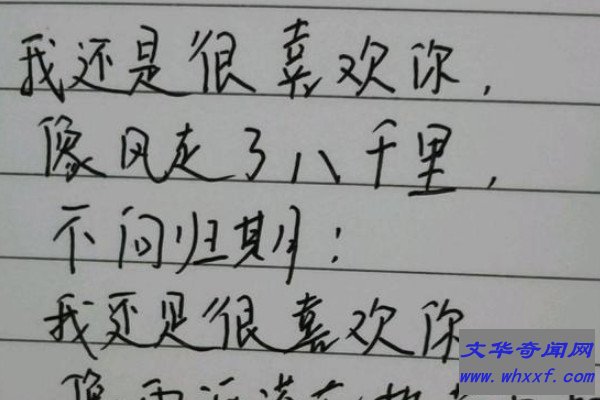 我还是很喜欢你，
像风走了八千里，
不问归期；
我还是很喜欢你
像雨
文华奇闻网
www.whxxf.com